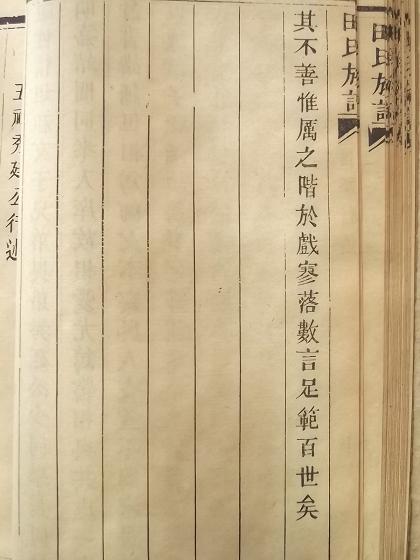 田氏族譜
田氏族譜
其不善惟厲之階於戲寥落數言足範百世矣